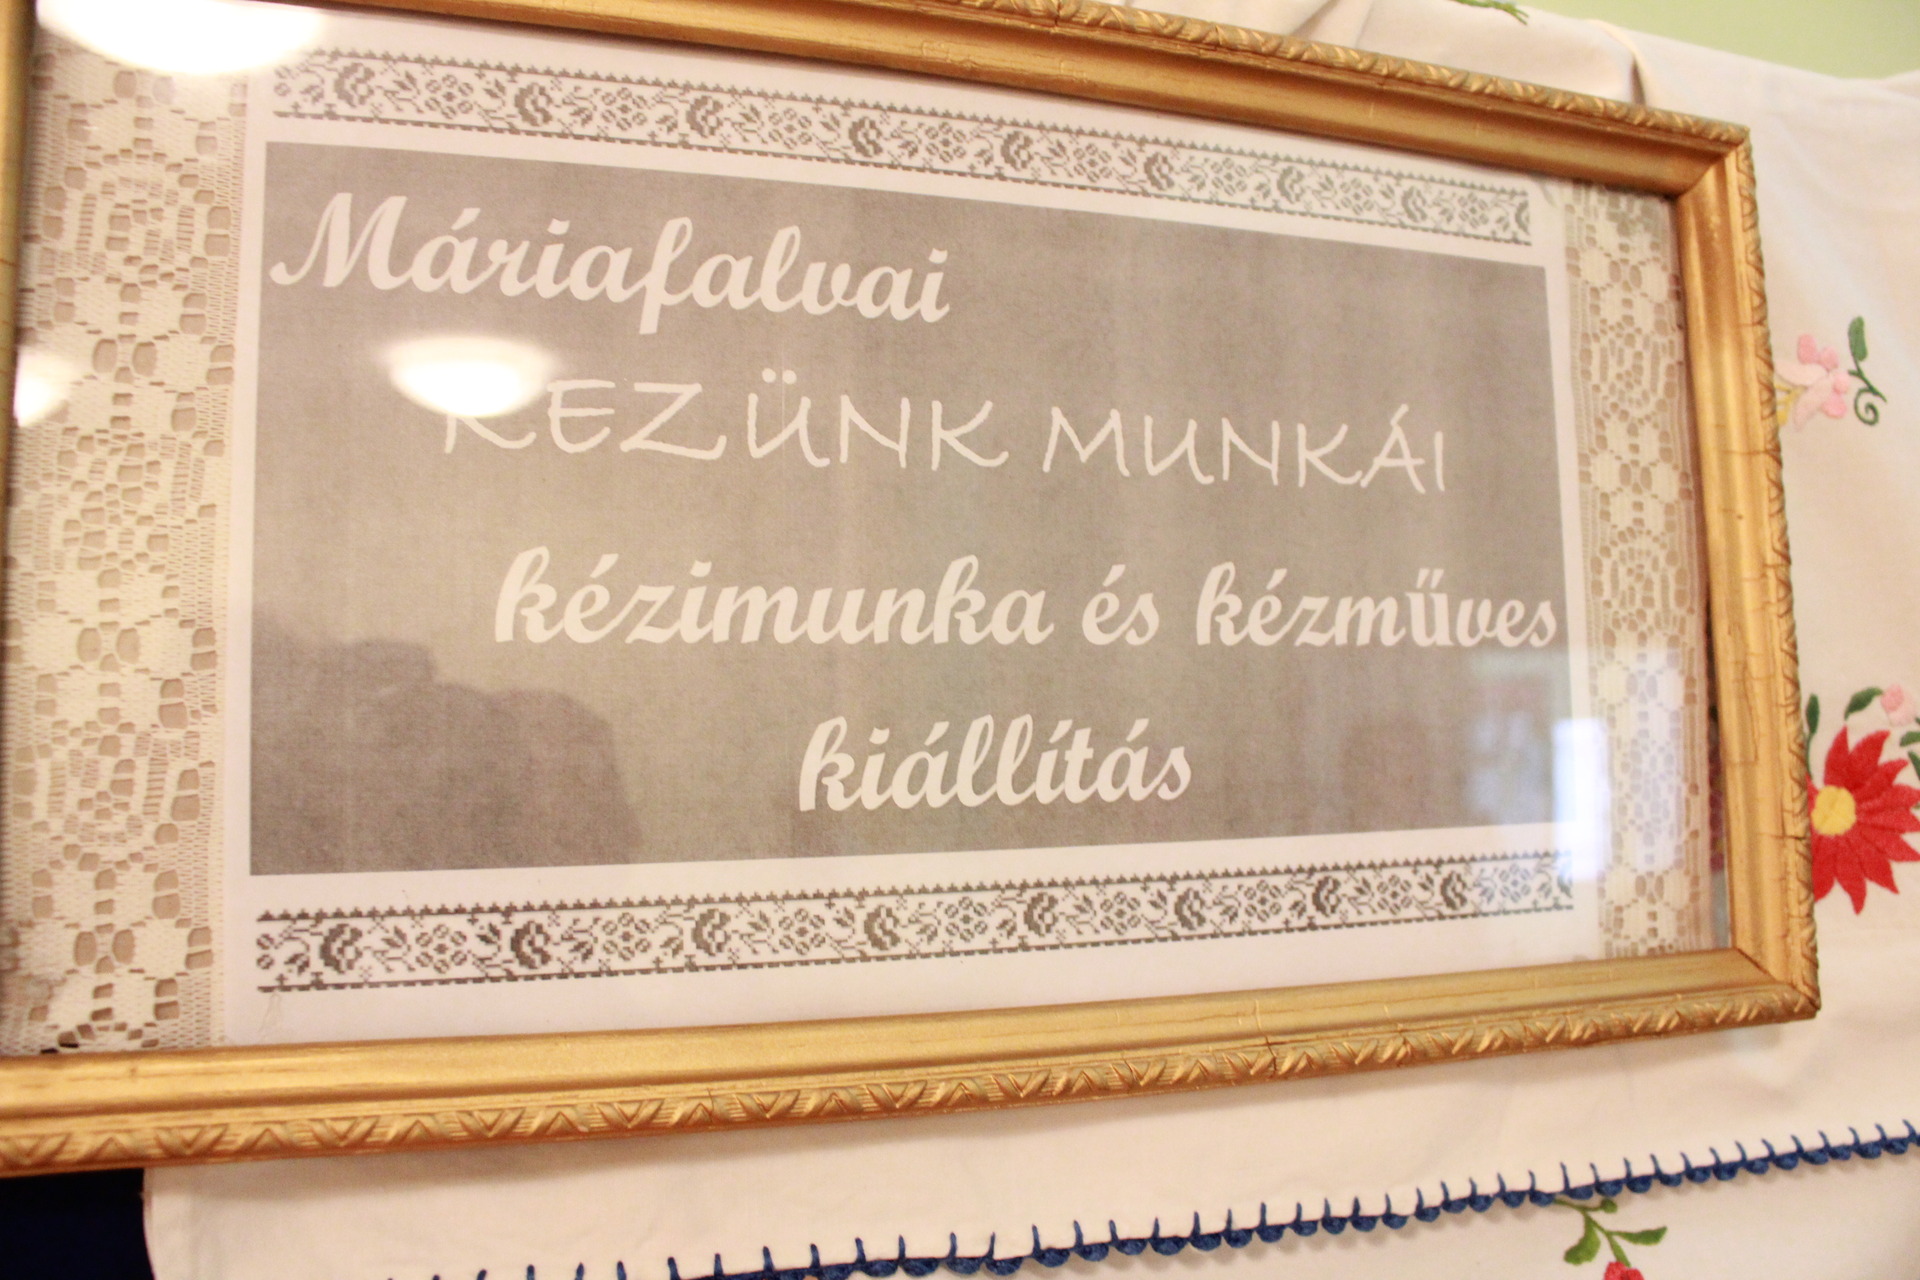 Máriafalvai
KEZÜNK MUNKÁI
kézimunka és kézműves
kiállítás